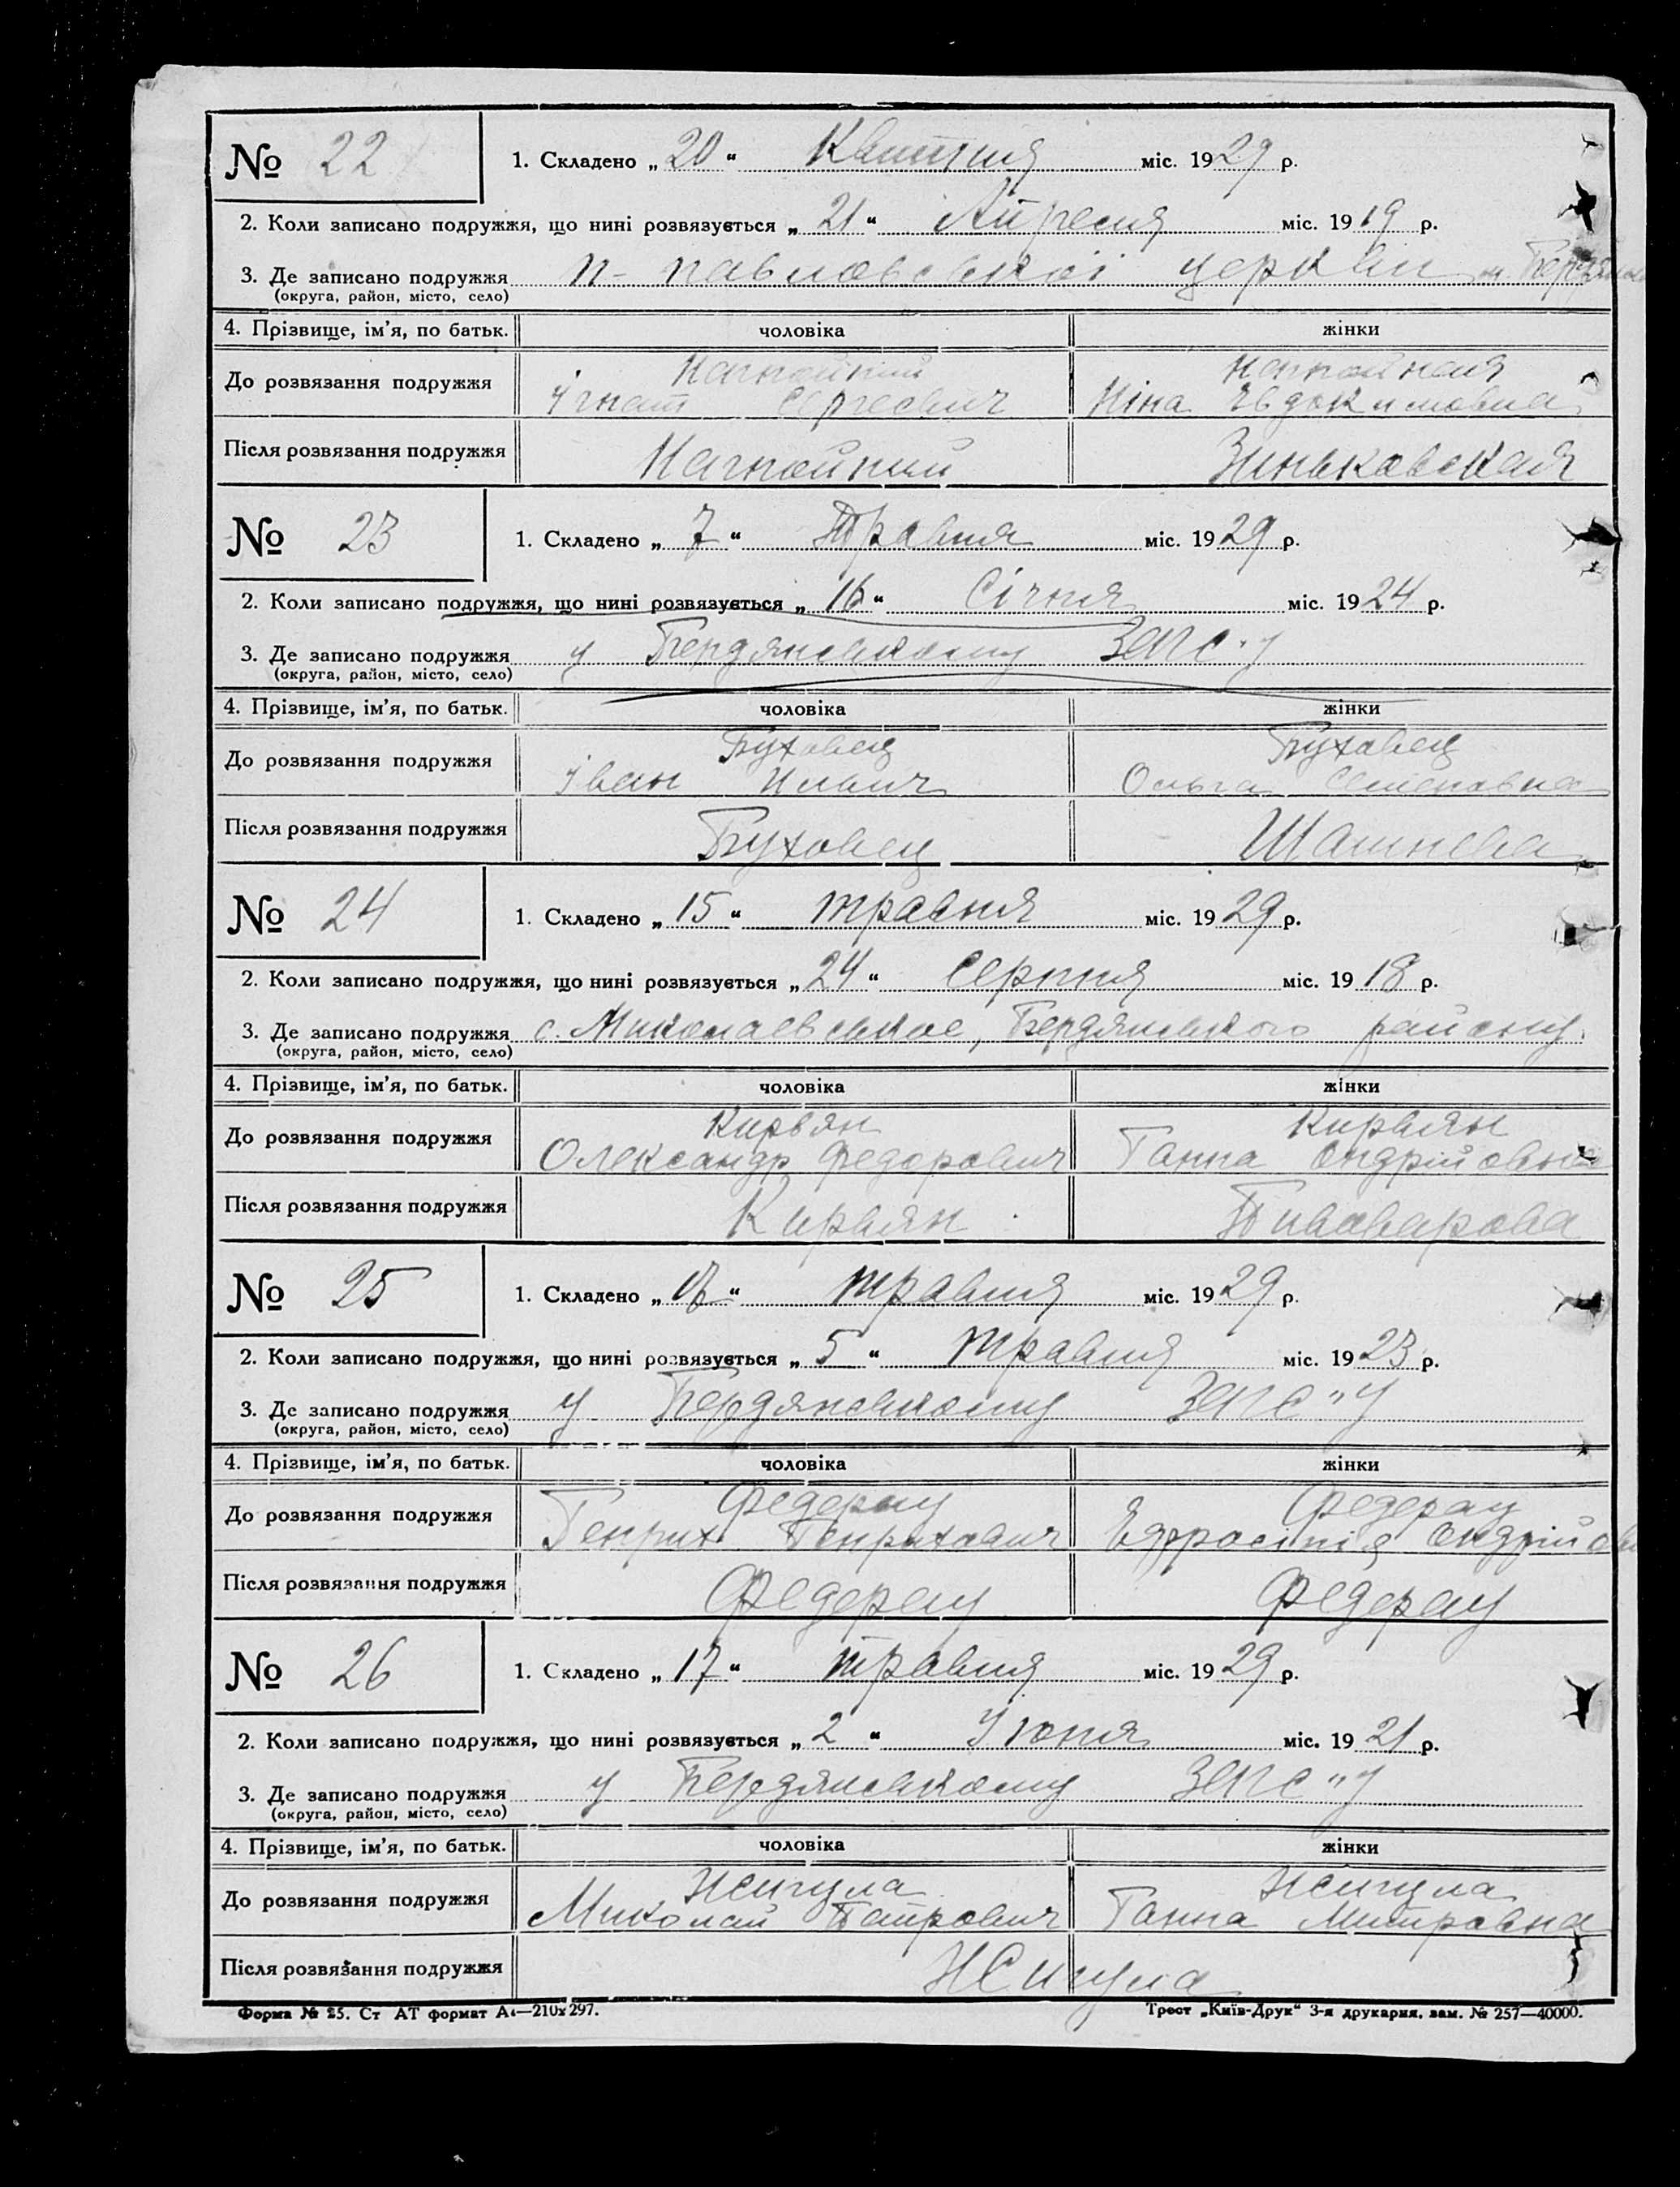 № 22 1. Складено „ 20 “ Квитня міс. 1929 р.
2. Коли записано подружжя, що нині розвязується „ 21 “ Апреля міс. 1919 р.
3. Де записано подружжя П-Павловской церкви м. Бердянск
(округа, район, місто, село)
4. Прізвище, ім’я, по батьк. чоловіка жінки
До розвязання подружжя
Ігнат Сергеевич Ніна Євдокимовна
Після розвязання подружжя Зиньковская
№ 23 1. Складено „ 7 “ Травня міс. 1929 р.
2. Коли записано подружжя, що нині розвязується „ 16 “ Січня міс. 1924 р.
3. Де записано подружжя у Бердянському ЗАГС-у
(округа, район, місто, село)
4. Прізвище, ім’я, по батьк. чоловіка жінки
Буховец Буховец
До розвязання подружжя Іван Ильич Ольга Семеновна
Після розвязання подружжя Буховец
№ 24 1. Складено „ 15 “ травня міс. 1929 р.
2. Коли записано подружжя, що нині розвязується „ 24 “ Серпня міс. 1918 р.
3. Де записано подружжя с. Миколаевское, Бердянського району.
(округа, район, місто, село)
4. Прізвище, ім’я, по батьк. чоловіка жінки
Кирвян Кирвян
До розвязання подружжя Олександр Федорович Ганна Ондрійовна
Після розвязання подружжя Кирвян Пивоварова
№ 25 1. Складено „ “ травня міс. 1929 р.
2. Коли записано подружжя, що нині розвязується „ 5 “ травня міс. 1923 р.
3. Де записано подружжя у Бердянському ЗАГС"у
(округа, район, місто, село)
4. Прізвище, ім’я, по батьк. чоловіка жінки
Федерау Федерау
До розвязання подружжя Генрих Генрихович Ефросінія Ондрійовн
Після розвязання подружжя Федерау Федерау
№ 26 1. Складено „ 17 “ травня міс. 1929 р.
2. Коли записано подружжя, що нині розвязується „ 2 “ Июня міс. 1921 р.
3. Де записано подружжя у Бердянському ЗАГС"у
(округа, район, місто, село)
4. Прізвище, ім’я, по батьк. чоловіка жінки
Жигула Жигула
До розвязання подружжя Миколай Петрович Ганна Митровна
Після розвязання подружжя Жигула
Форма № 25. Ст АТ формат А4—210х297. Трест „Київ-Друк“ 3-я друкарня, зам. № 257—40000.